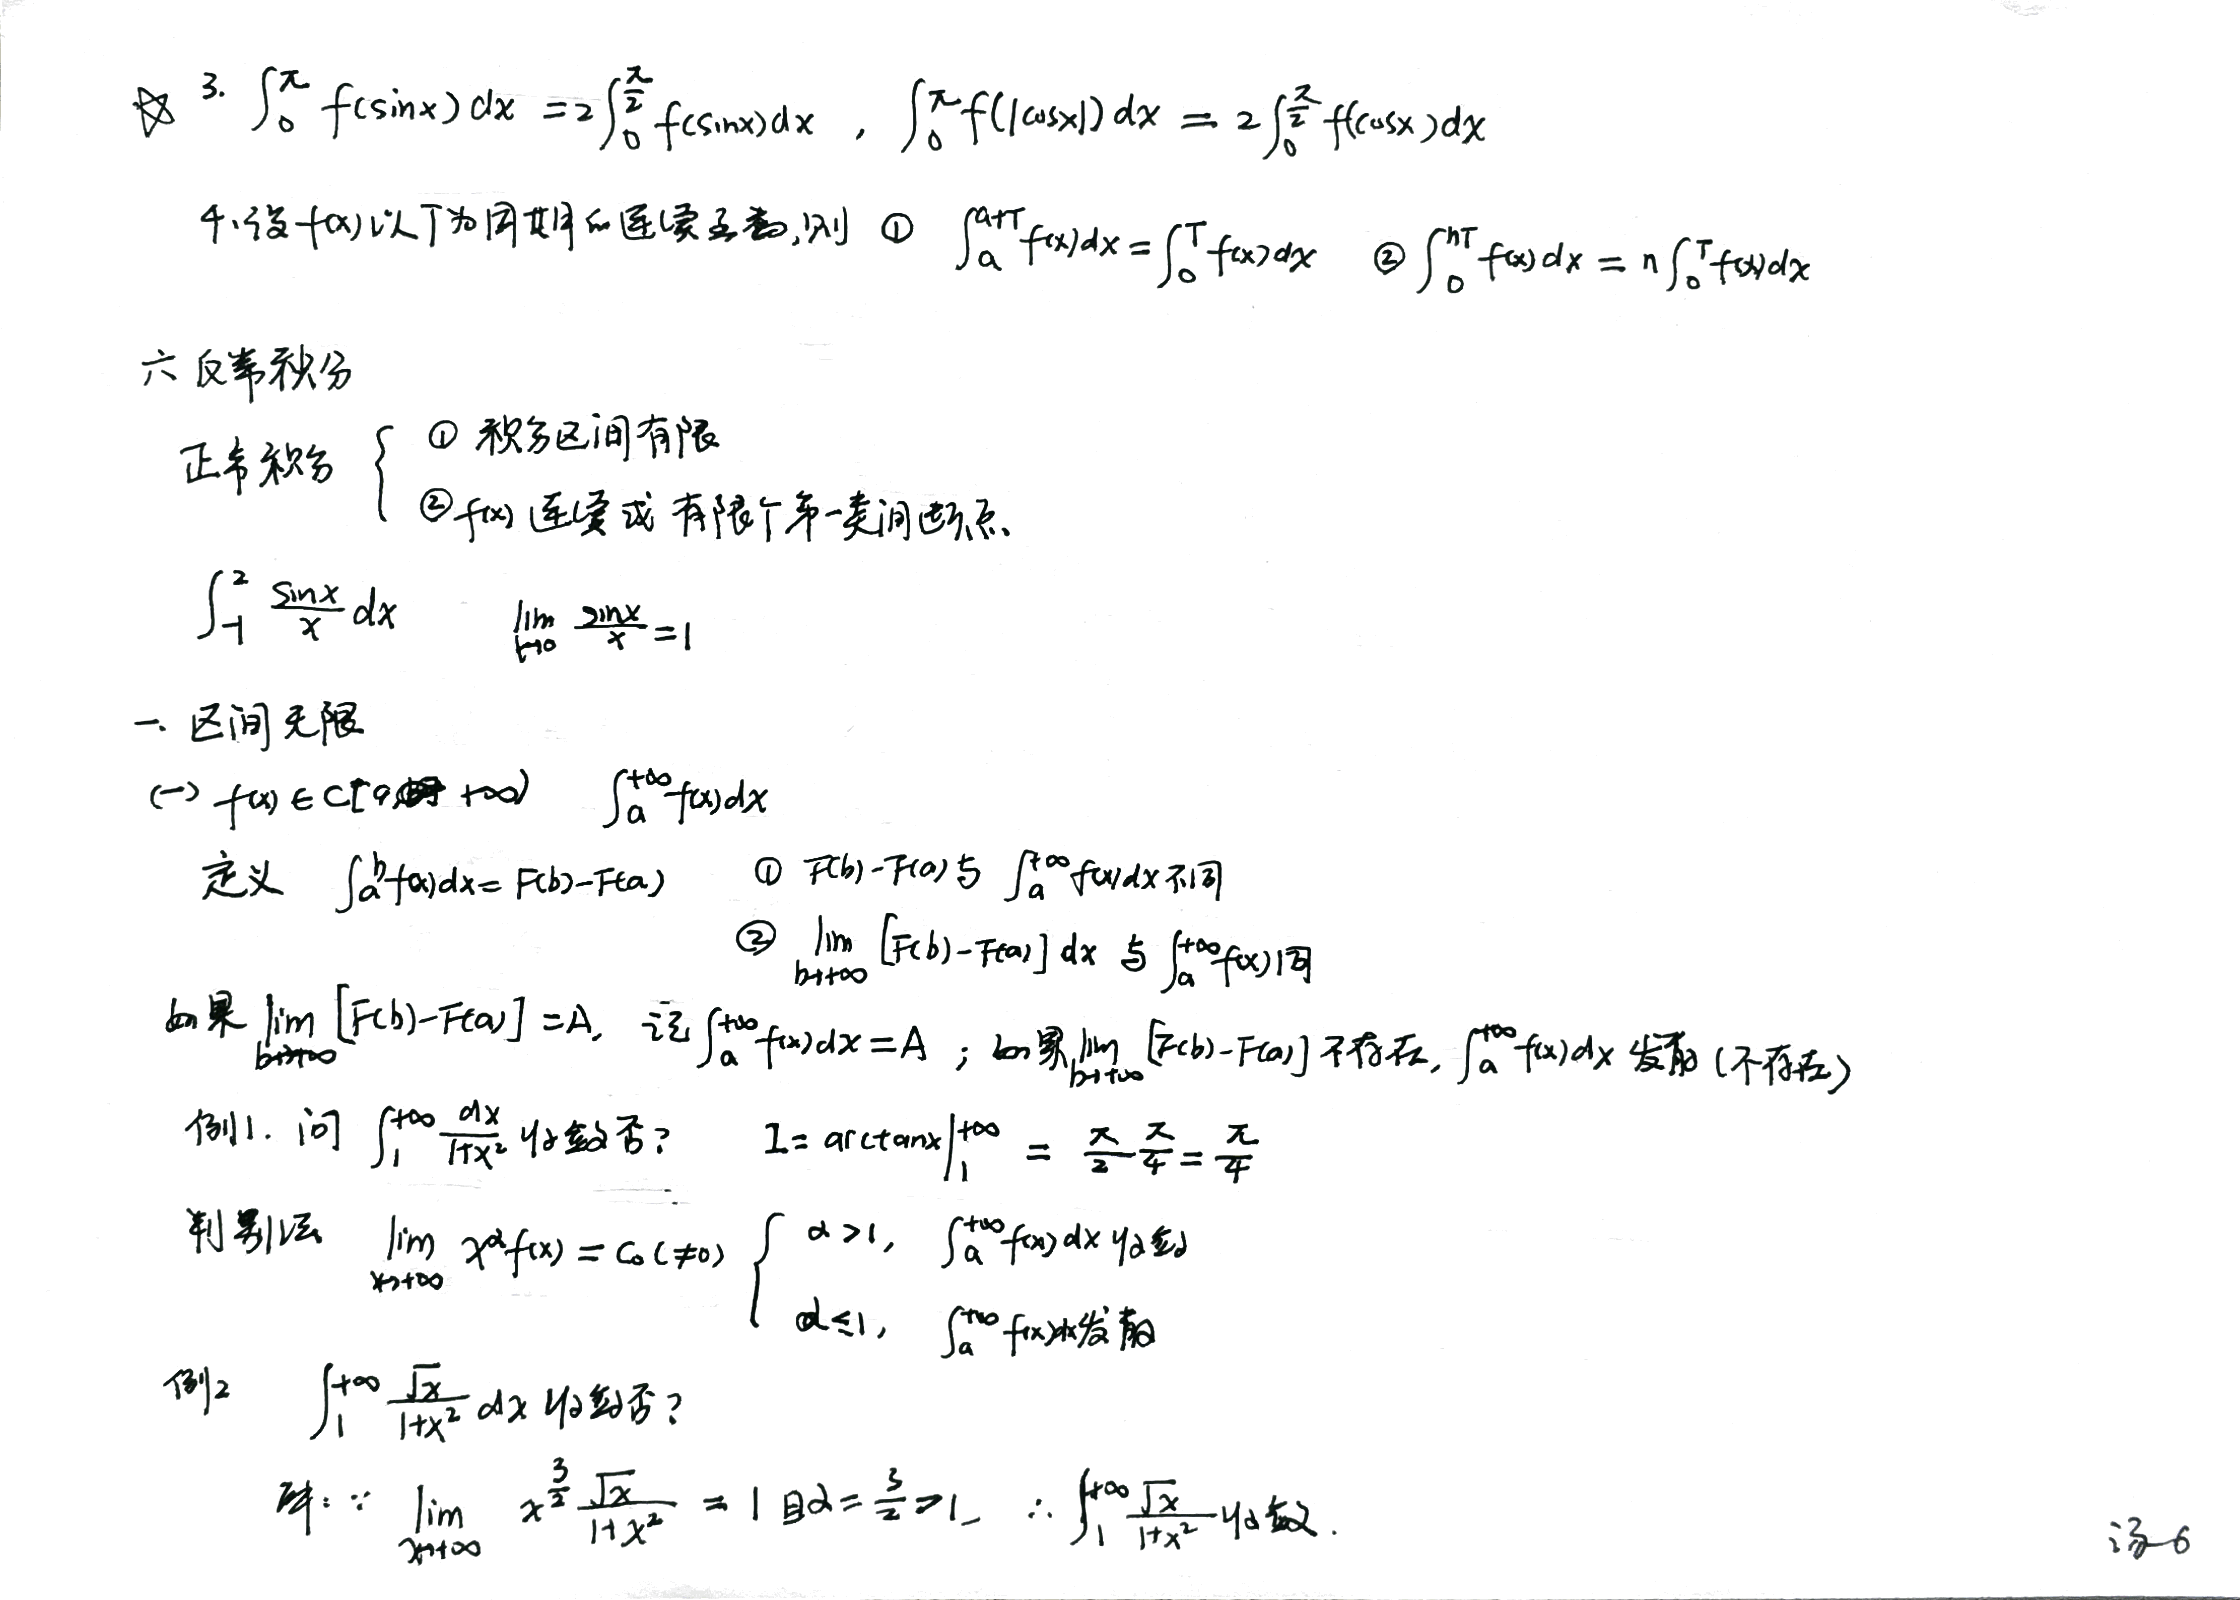 ☆ 3. ∫₀^π f(sinx)dx = 2∫₀^(π/2) f(sinx)dx , ∫₀^π f(|cosx|)dx = 2∫₀^(π/2) f(cosx)dx
4、设f(x)以T为周期的连续函数,则 ① ∫ₐ^(a+T) f(x)dx = ∫₀^T f(x)dx ② ∫₀^(nT) f(x)dx = n∫₀^T f(x)dx
六 反常积分
正常积分 { ① 积分区间有限
② f(x) 连续或 有限个第一类间断点、
∫₋₁² sinx/x dx lim sinx/x = 1
一、区间无限
(一) f(x)∈C[a, +∞) ∫ₐ^(+∞) f(x)dx
定义 ∫ₐ^b f(x)dx = F(b)-F(a) ① F(b)-F(a)与 ∫ₐ^(+∞) f(x)dx不同
② lim_(b→+∞) [F(b)-F(a)]dx 与 ∫ₐ^(+∞) f(x)同
如果 lim_(b→+∞) [F(b)-F(a)] = A, 记∫ₐ^(+∞) f(x)dx = A ; 如果 lim_(b→+∞) [F(b)-F(a)] 不存在, ∫ₐ^(+∞) f(x)dx 发散 (不存在)
例1. 问 ∫₁^(+∞) dx/(1+x²) 收敛否? I = arctanx|₁^(+∞) = π/2-π/4 = π/4
判别法 lim_(x→+∞) x^α f(x) = C₀(≠0) { α>1, ∫ₐ^(+∞) f(x)dx 收敛
α≤1, ∫ₐ^(+∞) f(x)dx发散
例2 ∫₁^(+∞) √x/(1+x²) dx 收敛否?
解: ∵ lim_(x→+∞) x^(3/2) √x/(1+x²) = 1 且α = 3/2 >1, ∴ ∫₁^(+∞) √x/(1+x²) 收敛.
汤-6